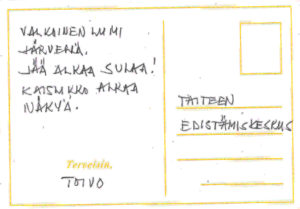 VALKOINEN LUMI
JÄRVELLÄ.
JÄÄ ALKAA SULAA!
KAISLIKKO ALKAA
NÄKYÄ.
Terveisin,
TOIVO
TAITEEN
EDISTÄMISKESKUS